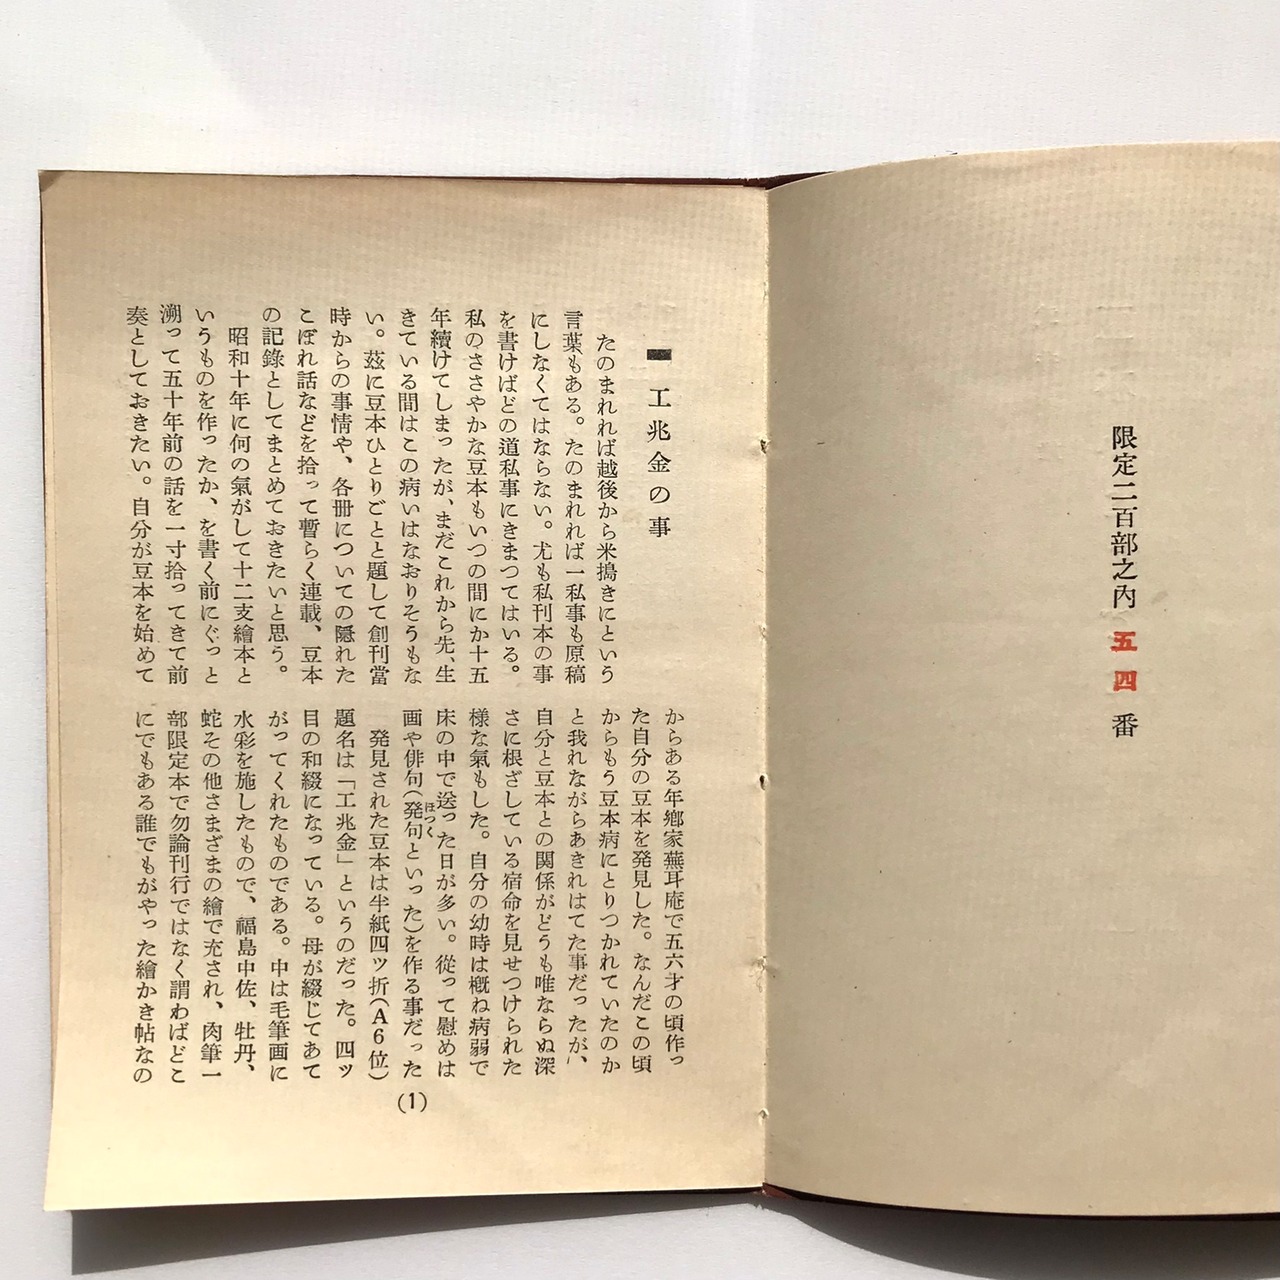 限定二百部之內 五四 番
工兆金の事
たのまれれば越後から米搗きにという
言葉もある。たのまれれば一私事も原稿
にしなくてはならない。尤も私刊本の事
を書けばどの道私事にきまつてはいる。
私のささやかな豆本もいつの間にか十五
年續けてしまったが、まだこれから先、生
きている間はこの病いはなおりそうもな
い。茲に豆本ひとりごとと題して創刊當
時からの事情や、各冊についての隠れた
こぼれ話などを拾って暫らく連載、豆本
の記錄としてまとめておきたいと思う。
昭和十年に何の氣がして十二支繪本と
いうものを作ったか、を書く前にぐっと
溯って五十年前の話を一寸拾ってきて前
奏としておきたい。自分が豆本を始めて
からある年鄕家蕪耳庵で五六才の頃作っ
た自分の豆本を発見した。なんだこの頃
からもう豆本病にとりつかれていたのか
と我れながらあきれはてた事だったが、
自分と豆本との関係がどうも唯ならぬ深
さに根ざしている宿命を見せつけられた
様な氣もした。自分の幼時は概ね病弱で
床の中で送った日が多い。從って慰めは
画や俳句(発句といった)を作る事だった
ほつく
発見された豆本は半紙四ツ折(A6位)
題名は「工兆金」というのだった。四ツ
目の和綴になっている。母が綴じてあて
がってくれたものである。中は毛筆画に
水彩を施したもので、福島中佐、牡丹、
蛇その他さまざまの繪で充され、肉筆一
部限定本で勿論刊行ではなく謂わばどこ
にでもある誰でもがやった繪かき帖なの
(1)